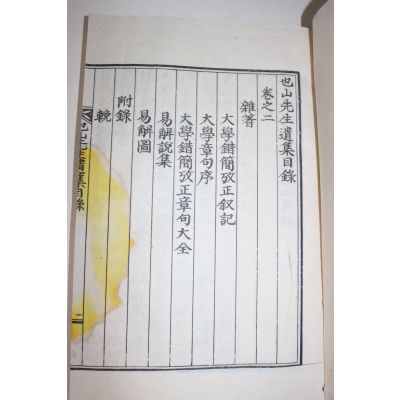 也山先生遺集目錄
卷之二
雜著
大學錯簡攷正叙記
大學章句序
大學錯簡攷正章句大全
易解說集
易解圖
附錄
輓
也山先生遺集目錄
二